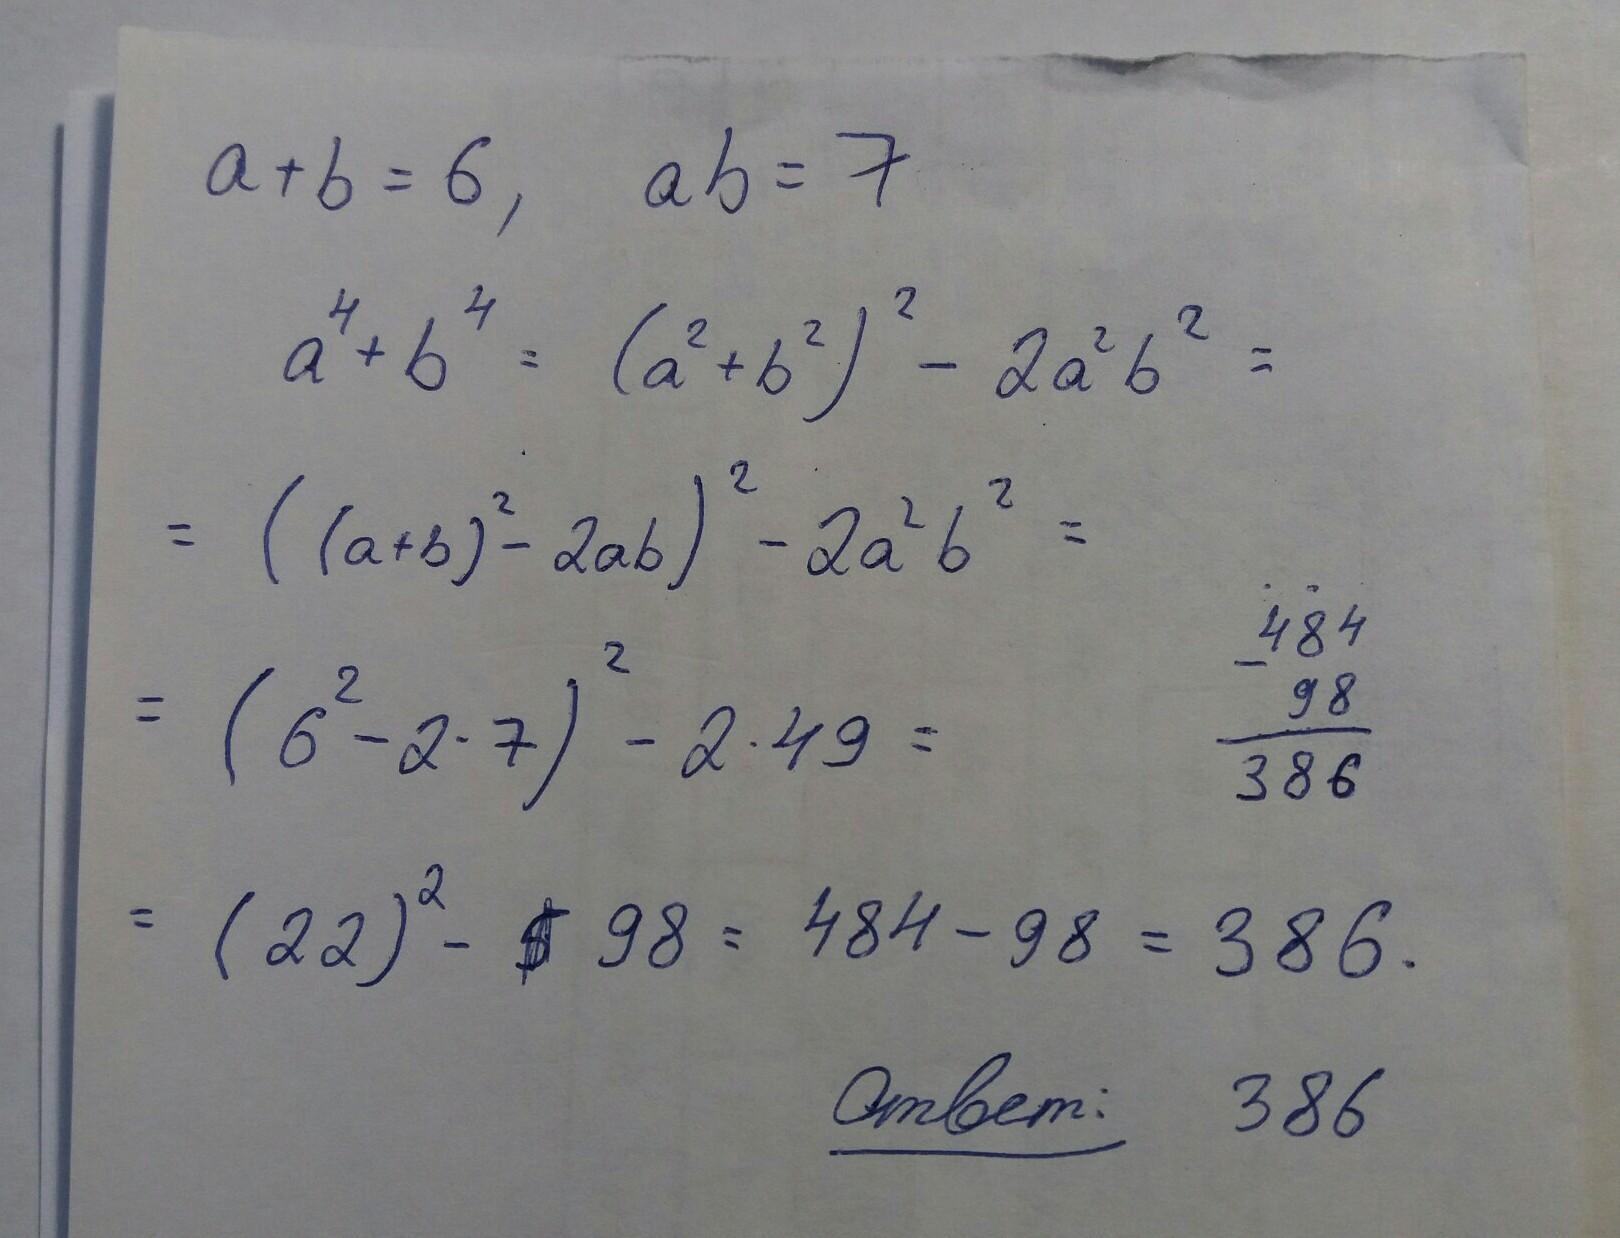 a+b=6, ab=7
a⁴+b⁴ = (a²+b²)² - 2a²b² =
= ((a+b)² - 2ab)² - 2a²b² =
= (6² - 2·7)² - 2·49 =
484
- 98
386
= (22)² - 98 = 484 - 98 = 386.
Ответ: 386